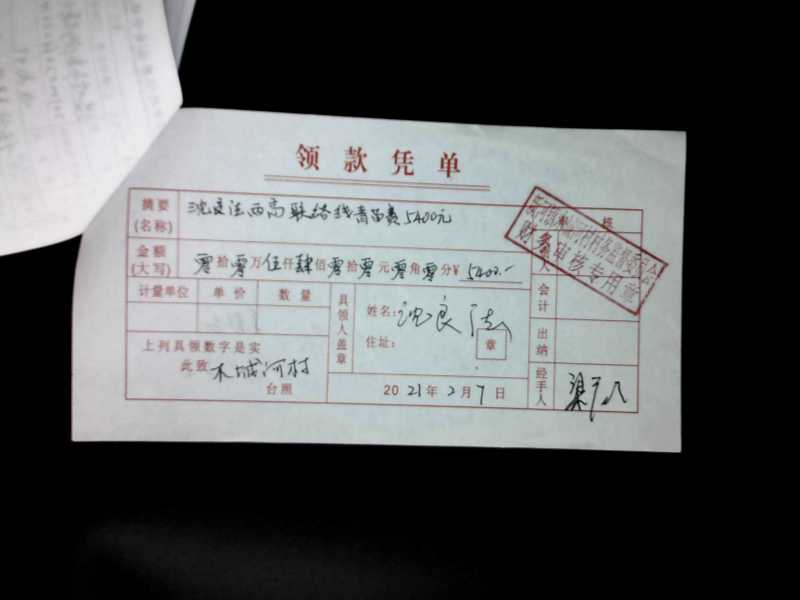 领款凭单
摘要
(名称)
沈良法西高联络线青苗费5400元
审核
金额
(大写)
零拾零万伍仟肆佰零拾零元零角零分¥ 5400.-
计量单位 单价 数量
具领人盖章
姓名: 沈良法
住址:
章
会计
出纳
经手人
上列具领数字是实
此致 木城河村
台照
2021年2月7日
财务审核专用章